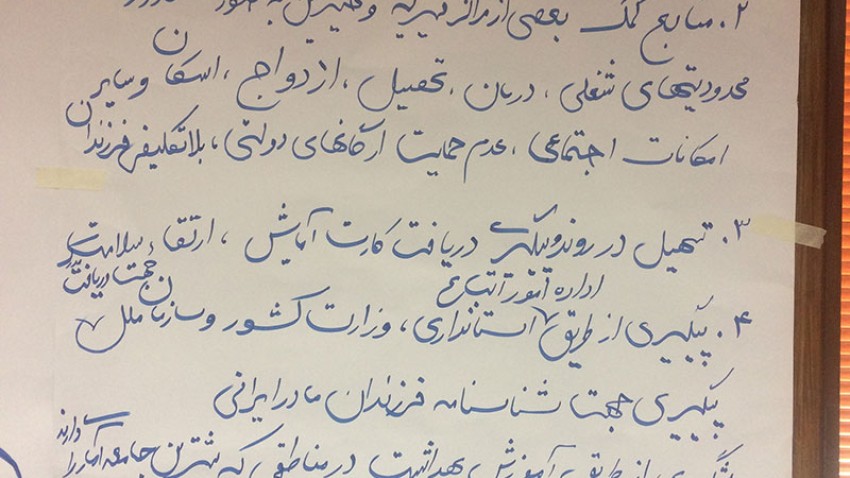 ۲. منابع کمک بعضی از مراکز خیریه و خیرین به
محدودیتهای شغلی، درمان، تحصیل، ازدواج، اسکان و سایرین
امکانات اجتماعی، عدم حمایت ارگانهای دولتی، بلاتکلیفی فرزندان
۳. تسهیل در روند پیگیری دریافت کارت آمایش، ارتقاء سلامت
اداره امور اتباع
جهت دریافت
۴. پیگیری از طریق استانداری، وزارت کشور و سازمان ملل
پیگیری جهت شناسنامه فرزندان مادر ایرانی
از طریق آموزش بهداشت در مناطقی که بیشترین جامعه آماری را دارند